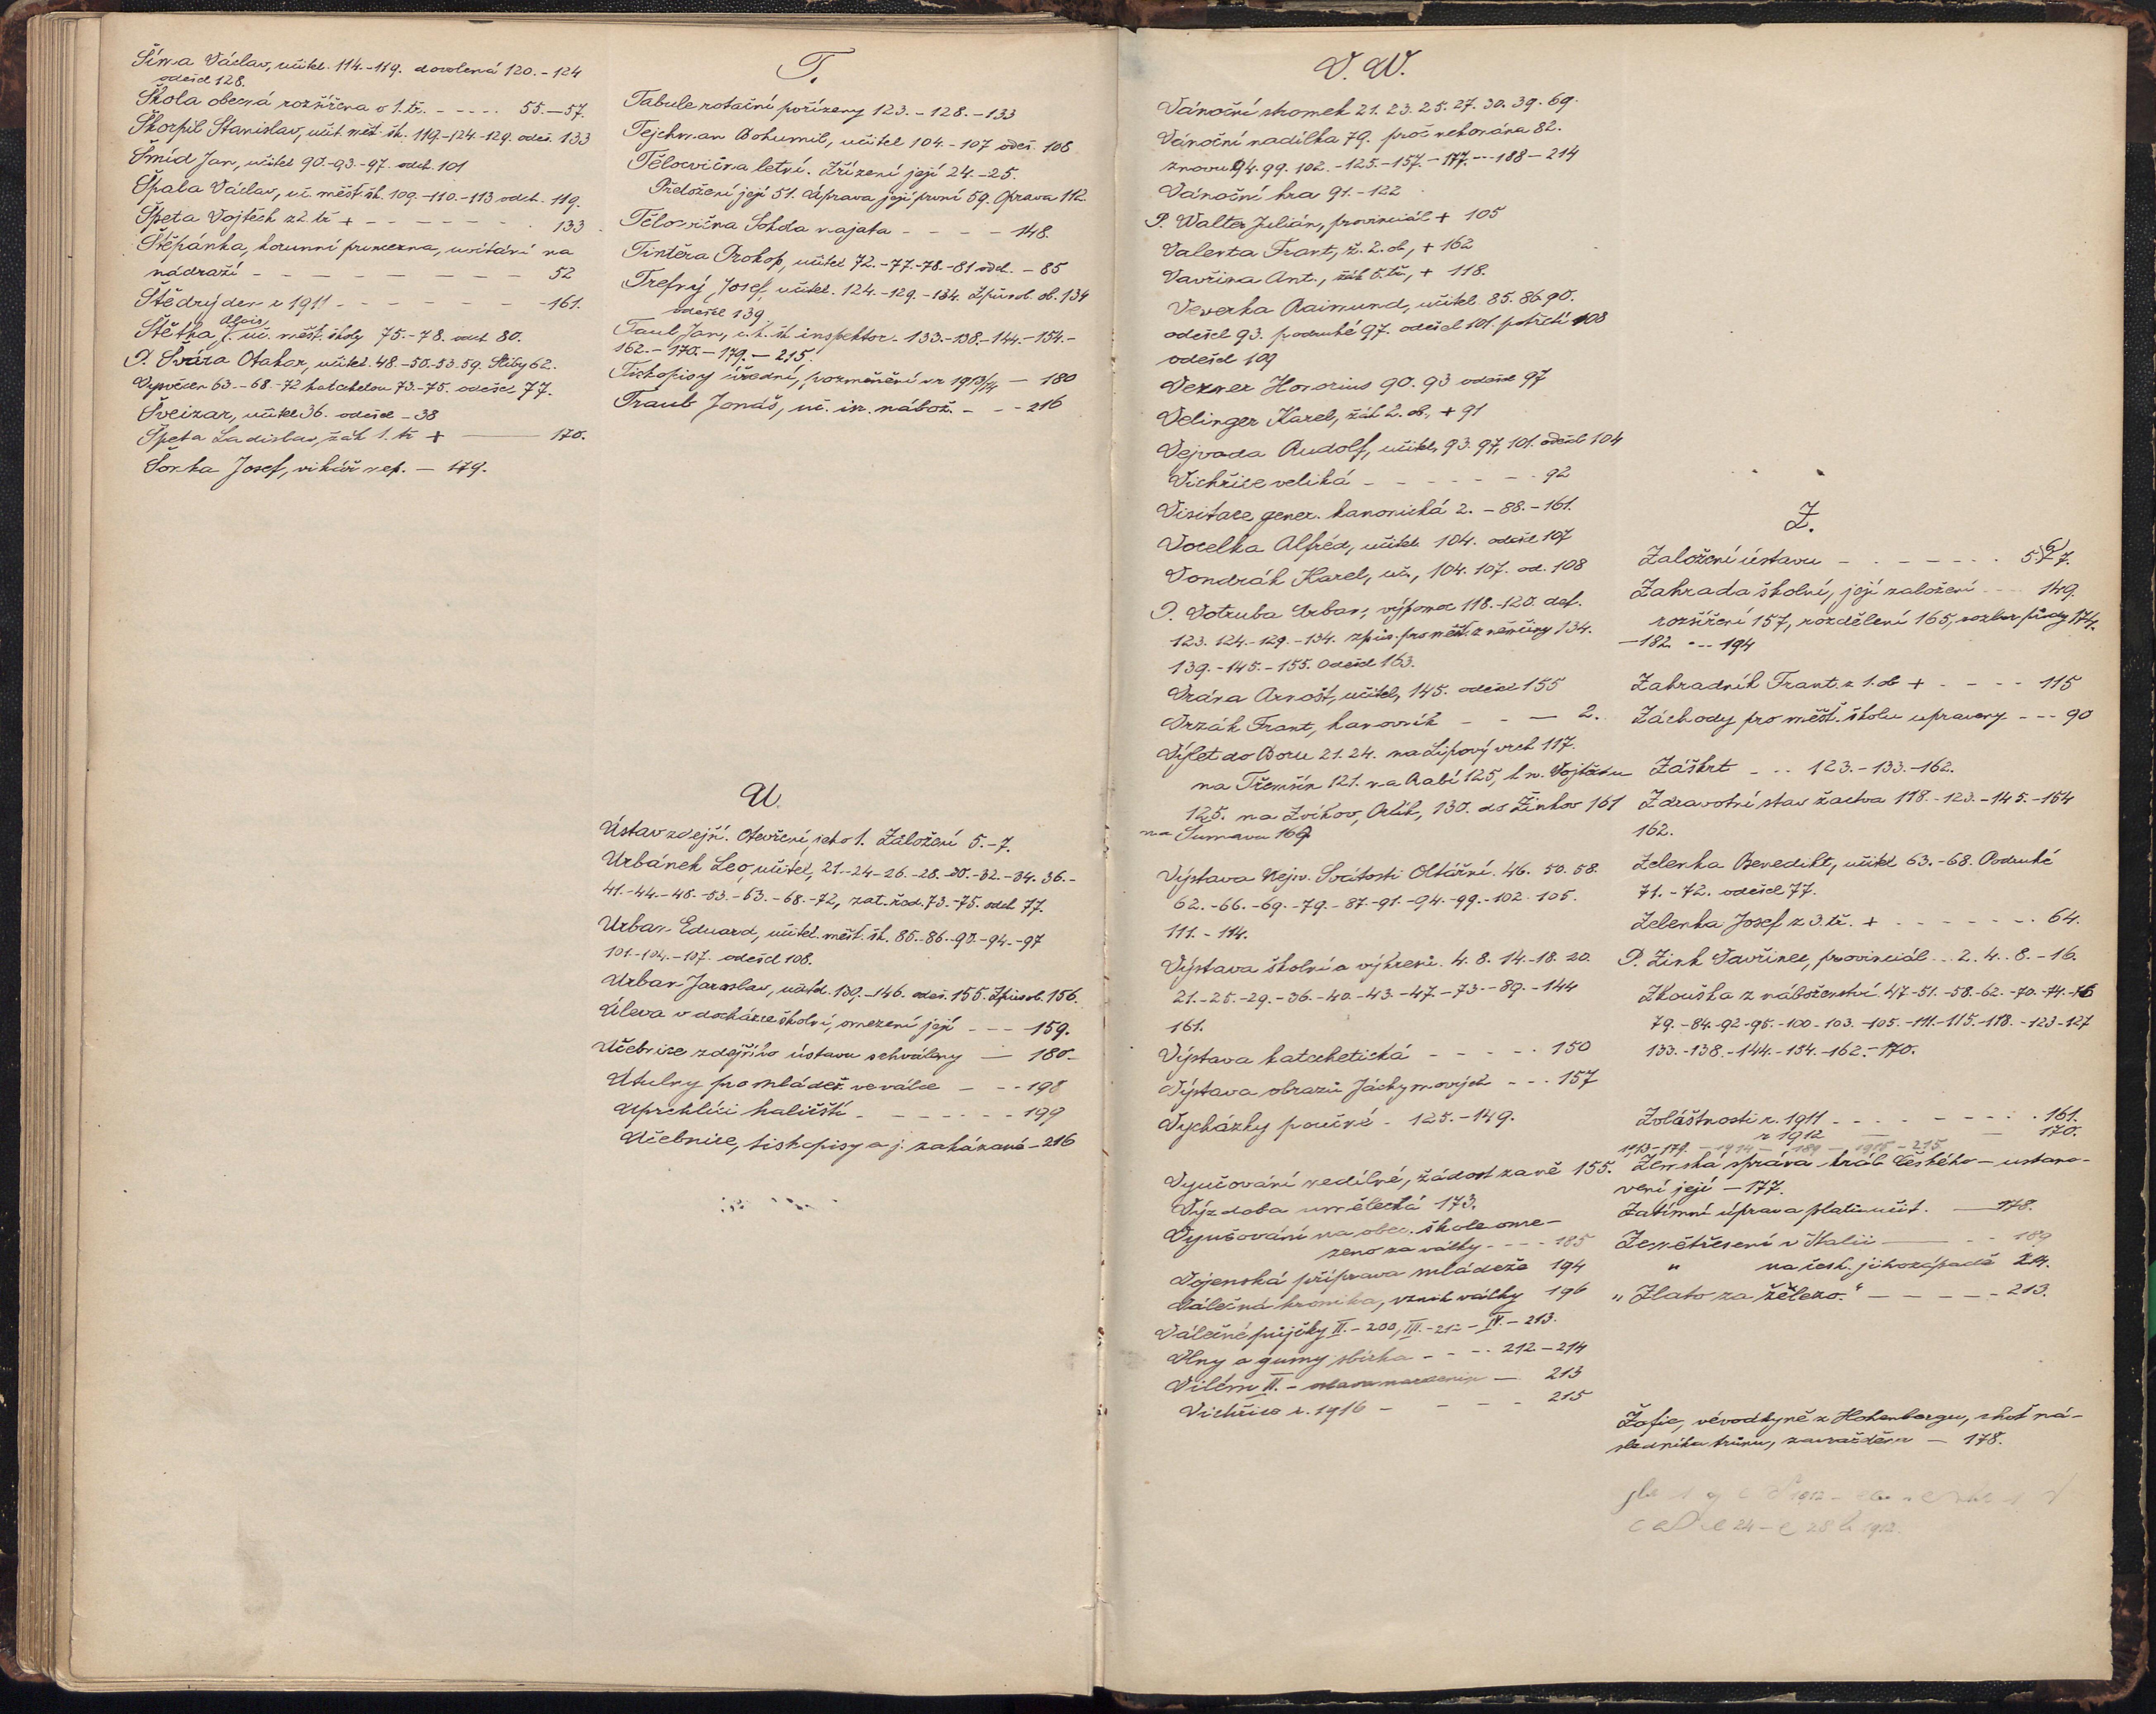 Šíma Václav, učitel. 114.-119. dovolená 120.-124
odešel 128.
Škola obecná rozšířena o 1. tř. - - - - - 55.-57.
Škorpil Stanislav, učit. měšť. šk. 119.-124.-129. odeš. 133
Šmíd Jan, učitel 90.-93.-97. odch. 101
Špala Václav, uč. měšť. šk. 109.-110.-113 odch. 119.
Špeta Vojtěch z 2. tř. + - - - - - - 133
Štěpánka, korunní princezna, uvítání na
nádraží - - - - - - - - 52
Štědrý den r. 1911 - - - - - - - - 161.
Štětka, Alois uč. měšť. školy 75.-78. odch 80.
P. Švára Otakar, učitel. 48.-50.-53.59. Sliby 62.
63.-68.-72 katechetou 73.-75. odešel 77.
Šveizar, učitel 36. odešel - 38
Špeta Ladislav, žák 1. tř. + - 170.
Šonka Josef, vikář nep. - 179.
T.
Tabule rotační pořízeny 123.-128.-133
Tejchman Bohumil, učitel 104.-107 odeš. 108
Tělocvična letní. Zřízení její 24.-25.
Přeložení její 51. Úprava její první 59. Oprava 112.
Tělocvična Sokola najata - - - - 148.
Tintěra Prokop, učitel 72.-77.-78.-81 odch. - 85
Trefný Josef, učitel. 124.-129.-134. Způsob. ob. 134
odešel 139
Taul Jan, c. k. šk. inspektor. 133.-138.-144.-154.-
162.-170.-179.-215.
Tiskopisy úřední, pozměnění v r 1913/14 - 180
Traub Jonáš, uč. izr. nábož. - - - 216
U.
Ústav zdejší. Otevření jeho 1. Založení 5.-7.
Urbánek Leo, učitel, 21.-24-26.-28.-30.-32.-34. 36.-
41.-44.-48.-53.-63.-68.-72, zat. řed. 73.-75. odch. 77.
Urban Eduard, učitel. měšť. šk. 85.-86.-90.-94.-97
101.-104.-107. odešel 108.
Urban Jaroslav, učitel. 139.-146. odeš. 155. Způsob. 156.
Úleva v docházce školní, omezení její - - - 159.
Učebnice zdejšího ústavu schváleny - 180.-
Útulny pro mládež ve válce - - - 198
Uprchlíci haličští - - - - - - - 199
Učebnice, tiskopisy a j. zakázané - 216
V. W.
Vánoční stromek 21. 23. 25. 27. 30. 39. 69.
Vánoční nadílka 79. proč nekonána 82.
znovu 94. 99. 102.-125.-157.-177.---188-214
Vánoční hra 91.-122
P. Walter Julián, provinciál + 105
Valenta Frant, ž. 2. ob, + 162
Vavřina Ant., žák 5. tř., + 118.
Veverka Raimund, učitel. 85. 86 90.
odešel 93. podruhé 97. odešel 101. potřetí 108
odešel 109
Vexner Honorius 90. 93 odešel 97
Velinger Karel, žák 2. ob, + 91
Vejvoda Rudolf, učitel, 93. 97, 101. odešel 104
Vichřice veliká - - - - - - - 92
Visitace gener. kanonická 2.-88.-161.
Vocelka Alfréd, učitel. 104. odešel 107
Vondrák Karel, uč., 104. 107. od. 108
P. Votruba Urban, výpomoc 118.-120. def.
123. 124.-129.-134. způs. pro měšť. z němčiny 134.
139.-145.-155. Odešel 163.
Vrána Arnošt, učitel, 145. odešel 155
Vrzák Frant, kanovník - - - 2.
Výlet do Boru 21. 24. na Lipový vrch 117.
na Třemšín 121. na Rabí 125, k sv. Vojtěchu
125. na Zvíkov, Orlík, 130. do Žinkov 161
na Šumavu 169
Výstava Nejsv. Svátosti Oltářní. 46. 50. 58.
62.-66.-69.-79.-87.-91.-94.-99.-102. 105.
111.-114.
Výstava školní a výkresů. 4. 8. 14.-18. 20.
21.-25.-29.-36.-40.-43.-47.-73.-89.-144
161.
Výstava katechetická - - - - - 150
Výstava obrazů Jáchymových - - - 157
Vycházky poučné - 125.-149.
Vyučování nedílné, žádost za ně 155.
Výzdoba umělecká 173.
Vyučování na obec. škole ome-
zeno za války - - - - 185
Vojenská příprava mládeže 194
Válečná kronika, vznik války 196
Válečné půjčky II.-200, III.-212-IV.-213.
Vlny a gumy sbírka - - - - 212.-214
Vilém II. - oslava narozenin - 213
Vichřice r. 1916 - - - - 215
Z.
Založení ústavu - - - - - - - 5.-7. 6)
Zahrada školní, její založení - - 149.
rozšíření 157, rozdělení 165, rozbor půdy 174.
-182. --- 194
Zahradník Frant. z 1. ob + - - - - 115
Záchody pro měšť. školu upraveny - - - 90
Záškrt - - - 123.-133.-162.
Zdravotní stav žactva 118.-123.-145.-154
162.
Zelenka Benedikt, učitel 63.-68. Podruhé
71.-72. odešel 77.
Zelenka Josef z 3. tř. + - - - - - - - 64.
P. Zink Vavřinec, provinciál. . 2. 4. 8.-16.
Zkouška z náboženství. 47-51.-58.-62.-70.-74.-76
79.-84.-92-95.-100-103.-105.-111.-115.-118.-123-127
133.-138.-144.-154.-162.-170.
Zvláštnosti r. 1911 - - - - - - - - 161.
r 1912 - - 170.
1913-179. - 1914 - 189 - 1915 - 215.
Zemská správa král. Českého - ustano-
vení její - 177.
Zatímní úprava platů učit. - 178.
Zemětřesení v Italii - - - 189
" na česk. jihozápadě 214.
"Zlato za železo." - - - - - 213.
Žofie, vévodkyně z Hohenbergu, choť ná-
sledníka trůnu, zavražděna - 178.